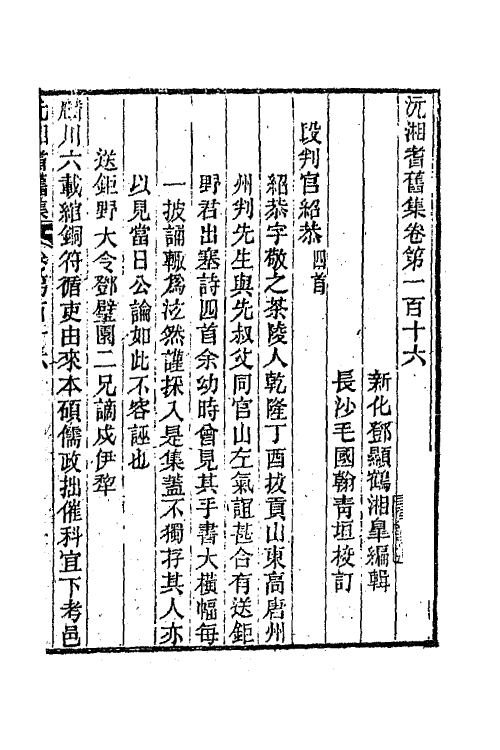 沅湘耆舊集卷第一百十六
新化鄧顯鶴湘皐編輯
長沙毛國翰靑垣校訂
段判官紹恭四首
紹恭字敬之茶陵人乾隆丁酉拔貢山東高唐州
州判先生與先叔父同官山左氣誼甚合有送鉅
野君出塞詩四首余幼時曾見其手書大橫幅每
一披誦輒爲泫然謹採入是集蓋不獨存其人亦
以見當日公論如此不容誣也
送鉅野大令鄧璧園二兄謫戍伊犂
川六載綰銅符循吏由來本碩儒政拙催科宜下考邑